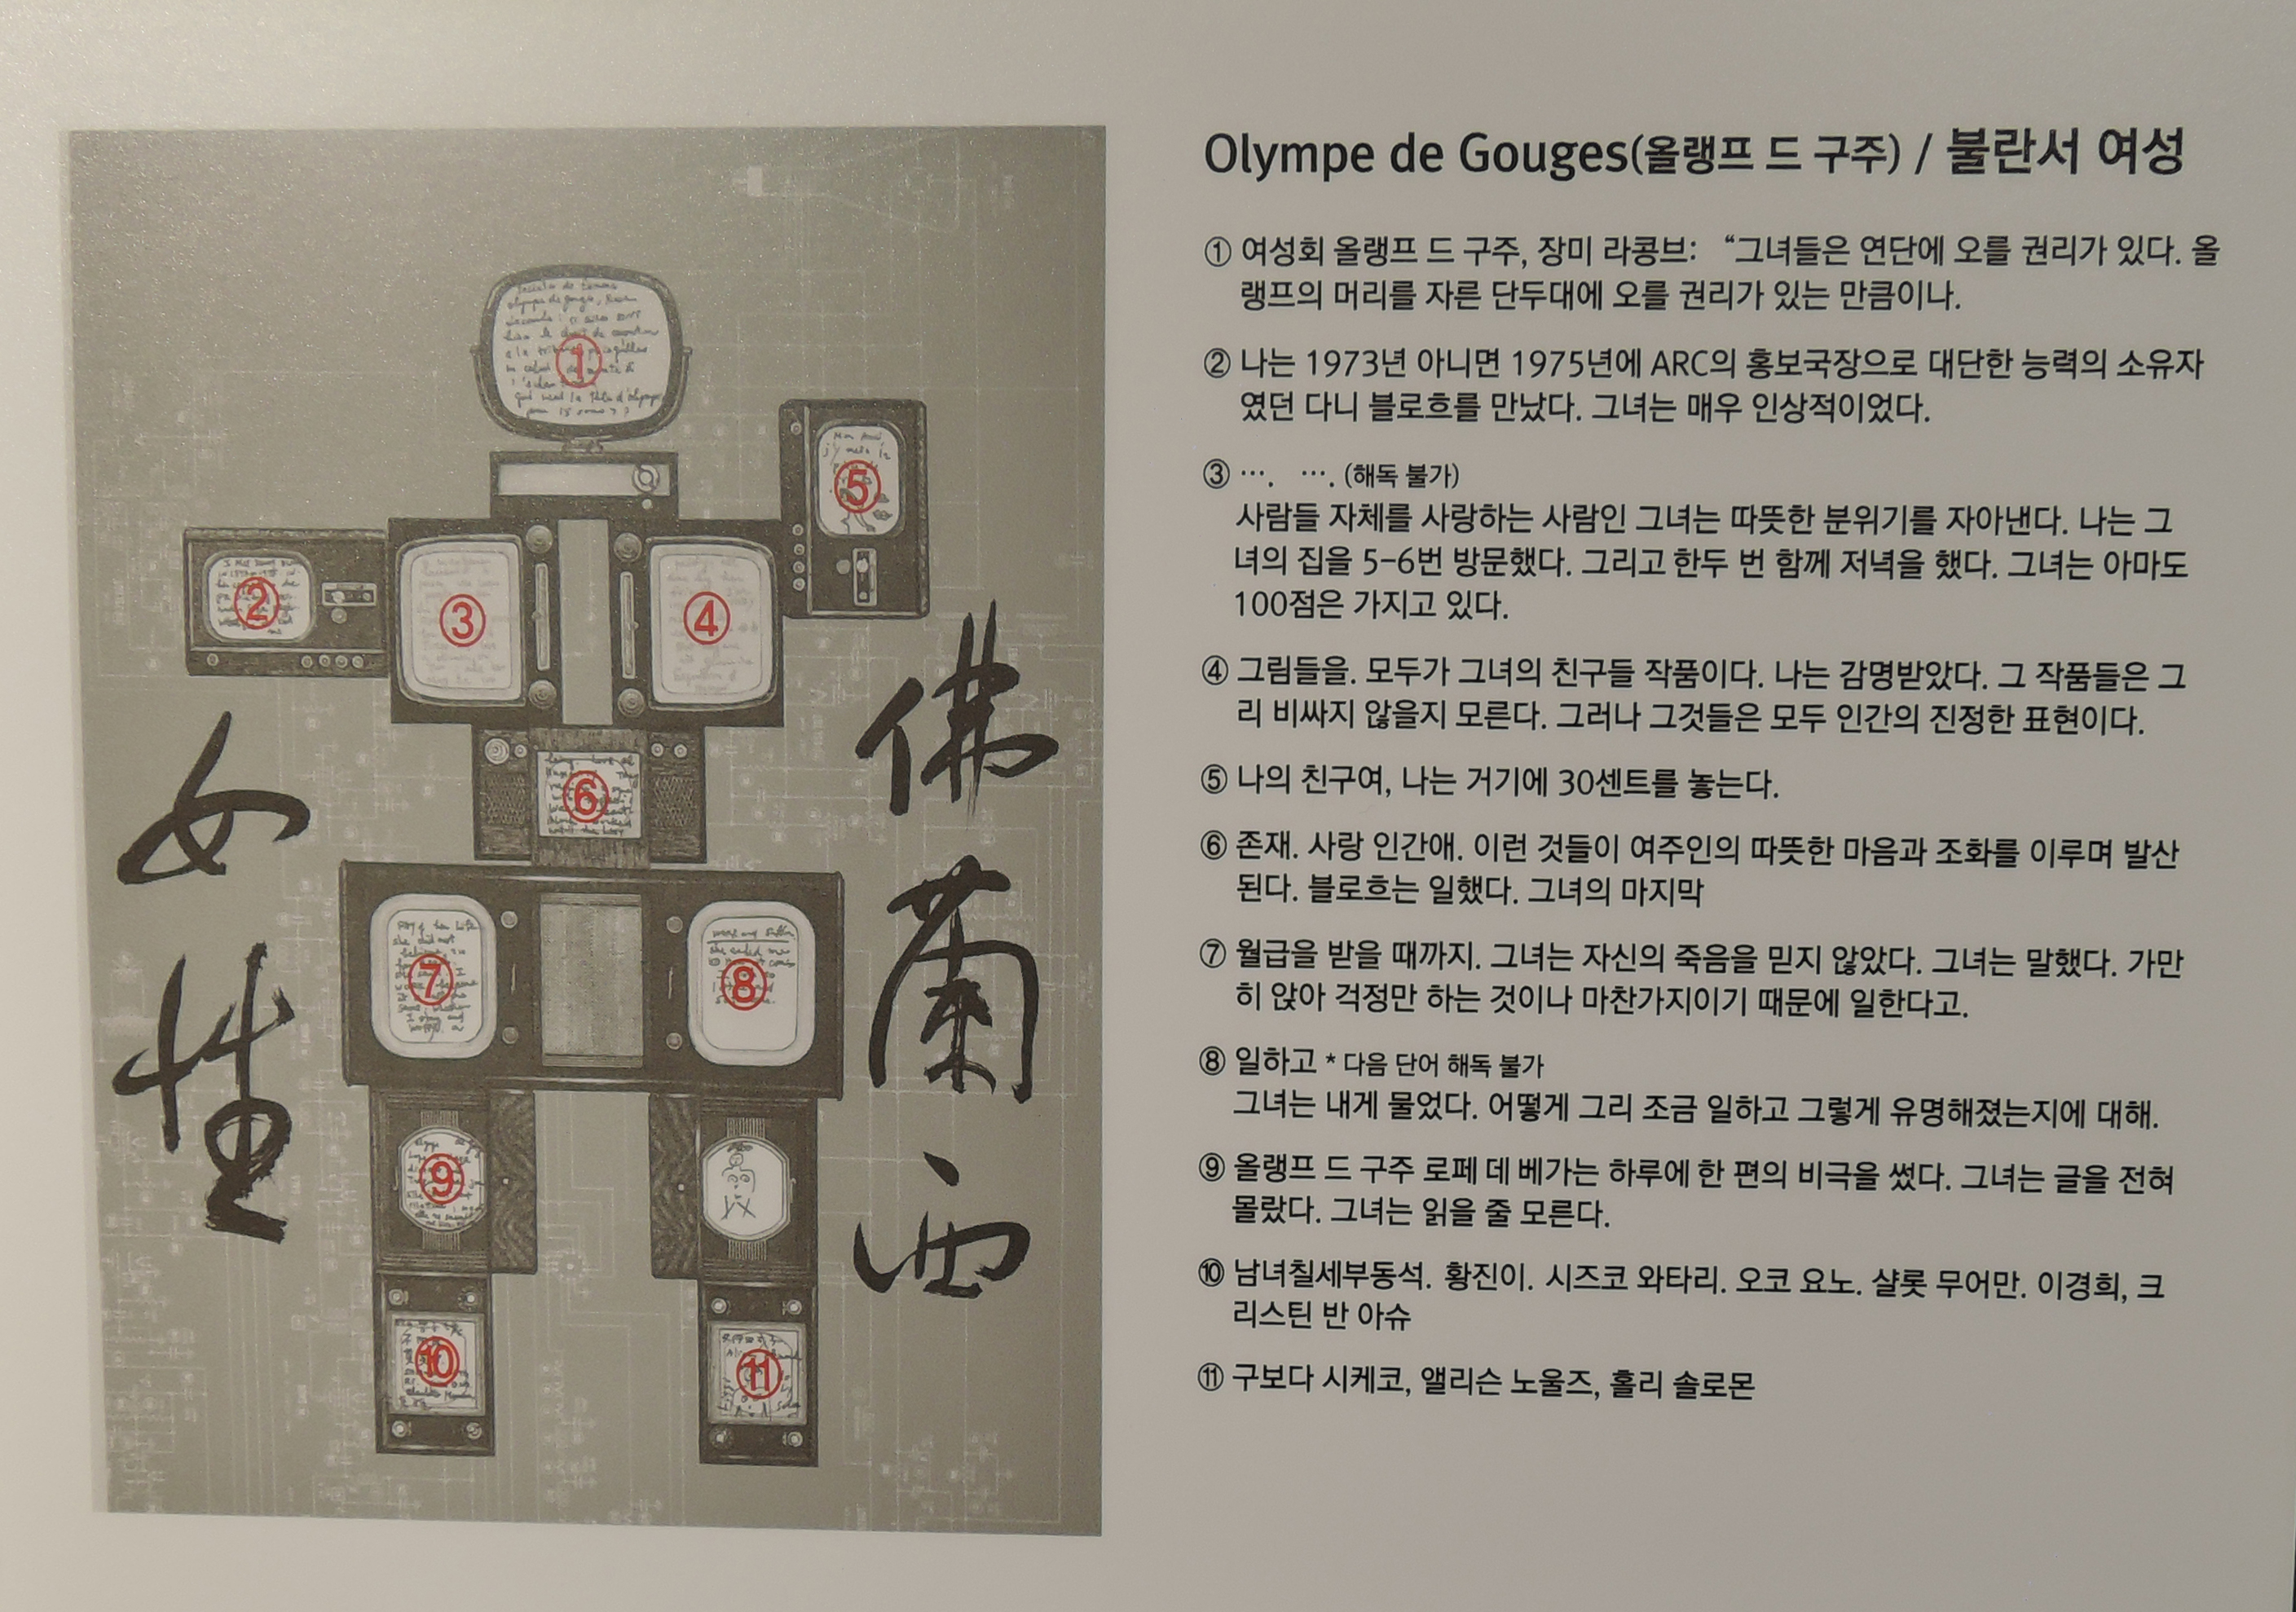 Olympe de Gouges(올랭프 드 구주) / 불란서 여성
① 여성회 올랭프 드 구주, 장미 라콩브: “그녀들은 연단에 오를 권리가 있다. 올
랭프의 머리를 자른 단두대에 오를 권리가 있는 만큼이나.
② 나는 1973년 아니면 1975년에 ARC의 홍보국장으로 대단한 능력의 소유자
였던 다니 블로흐를 만났다. 그녀는 매우 인상적이었다.
③ …. …. (해독 불가)
사람들 자체를 사랑하는 사람인 그녀는 따뜻한 분위기를 자아낸다. 나는 그
녀의 집을 5-6번 방문했다. 그리고 한두 번 함께 저녁을 했다. 그녀는 아마도
100점은 가지고 있다.
④ 그림들을. 모두가 그녀의 친구들 작품이다. 나는 감명받았다. 그 작품들은 그
리 비싸지 않을지 모른다. 그러나 그것들은 모두 인간의 진정한 표현이다.
⑤ 나의 친구여, 나는 거기에 30센트를 놓는다.
⑥ 존재. 사랑 인간애. 이런 것들이 여주인의 따뜻한 마음과 조화를 이루며 발산
된다. 블로흐는 일했다. 그녀의 마지막
⑦ 월급을 받을 때까지. 그녀는 자신의 죽음을 믿지 않았다. 그녀는 말했다. 가만
히 앉아 걱정만 하는 것이나 마찬가지이기 때문에 일한다고.
⑧ 일하고 * 다음 단어 해독 불가
그녀는 내게 물었다. 어떻게 그리 조금 일하고 그렇게 유명해졌는지에 대해.
⑨ 올랭프 드 구주 로페 데 베가는 하루에 한 편의 비극을 썼다. 그녀는 글을 전혀
몰랐다. 그녀는 읽을 줄 모른다.
⑩ 남녀칠세부동석. 황진이. 시즈코 와타리. 오코 요노. 샬롯 무어만. 이경희, 크
리스틴 반 아슈
⑪ 구보다 시케코, 앨리슨 노울즈, 홀리 솔로몬
佛蘭西
女性
①
②
③
④
⑤
⑥
⑦
⑧
⑨
⑩
⑪